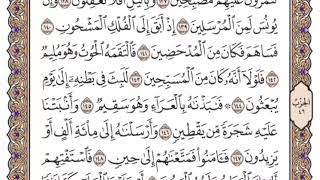 لَتَمُرُّونَ عَلَيْهِم مُّصْبِحِينَ ١٣٧ وَبِالَّيْلِ أَفَلَا تَعْقِلُونَ ١٣٨ وَإِنَّ
يُونُسَ لَمِنَ الْمُرْسَلِينَ ١٣٩ إِذْ أَبَقَ إِلَى الْفُلْكِ الْمَشْحُونِ ١٤٠
فَسَاهَمَ فَكَانَ مِنَ الْمُدْحَضِينَ ١٤١ فَالْتَقَمَهُ الْحُوتُ وَهُوَ مُلِيمٌ
١٤٢ فَلَوْلَا أَنَّهُ كَانَ مِنَ الْمُسَبِّحِينَ ١٤٣ لَلَبِثَ فِي بَطْنِهِ إِلَى يَوْمِ
يُبْعَثُونَ ١٤٤ فَنَبَذْنَاهُ بِالْعَرَاءِ وَهُوَ سَقِيمٌ ١٤٥ وَأَنْبَتْنَا
عَلَيْهِ شَجَرَةً مِّن يَقْطِينٍ ١٤٦ وَأَرْسَلْنَاهُ إِلَى مِائَةِ أَلْفٍ أَوْ
يَزِيدُونَ ١٤٧ فَآمَنُوا فَمَتَّعْنَاهُمْ إِلَى حِينٍ ١٤٨ فَاسْتَفْتِهِمْ
الحزب
٤٦